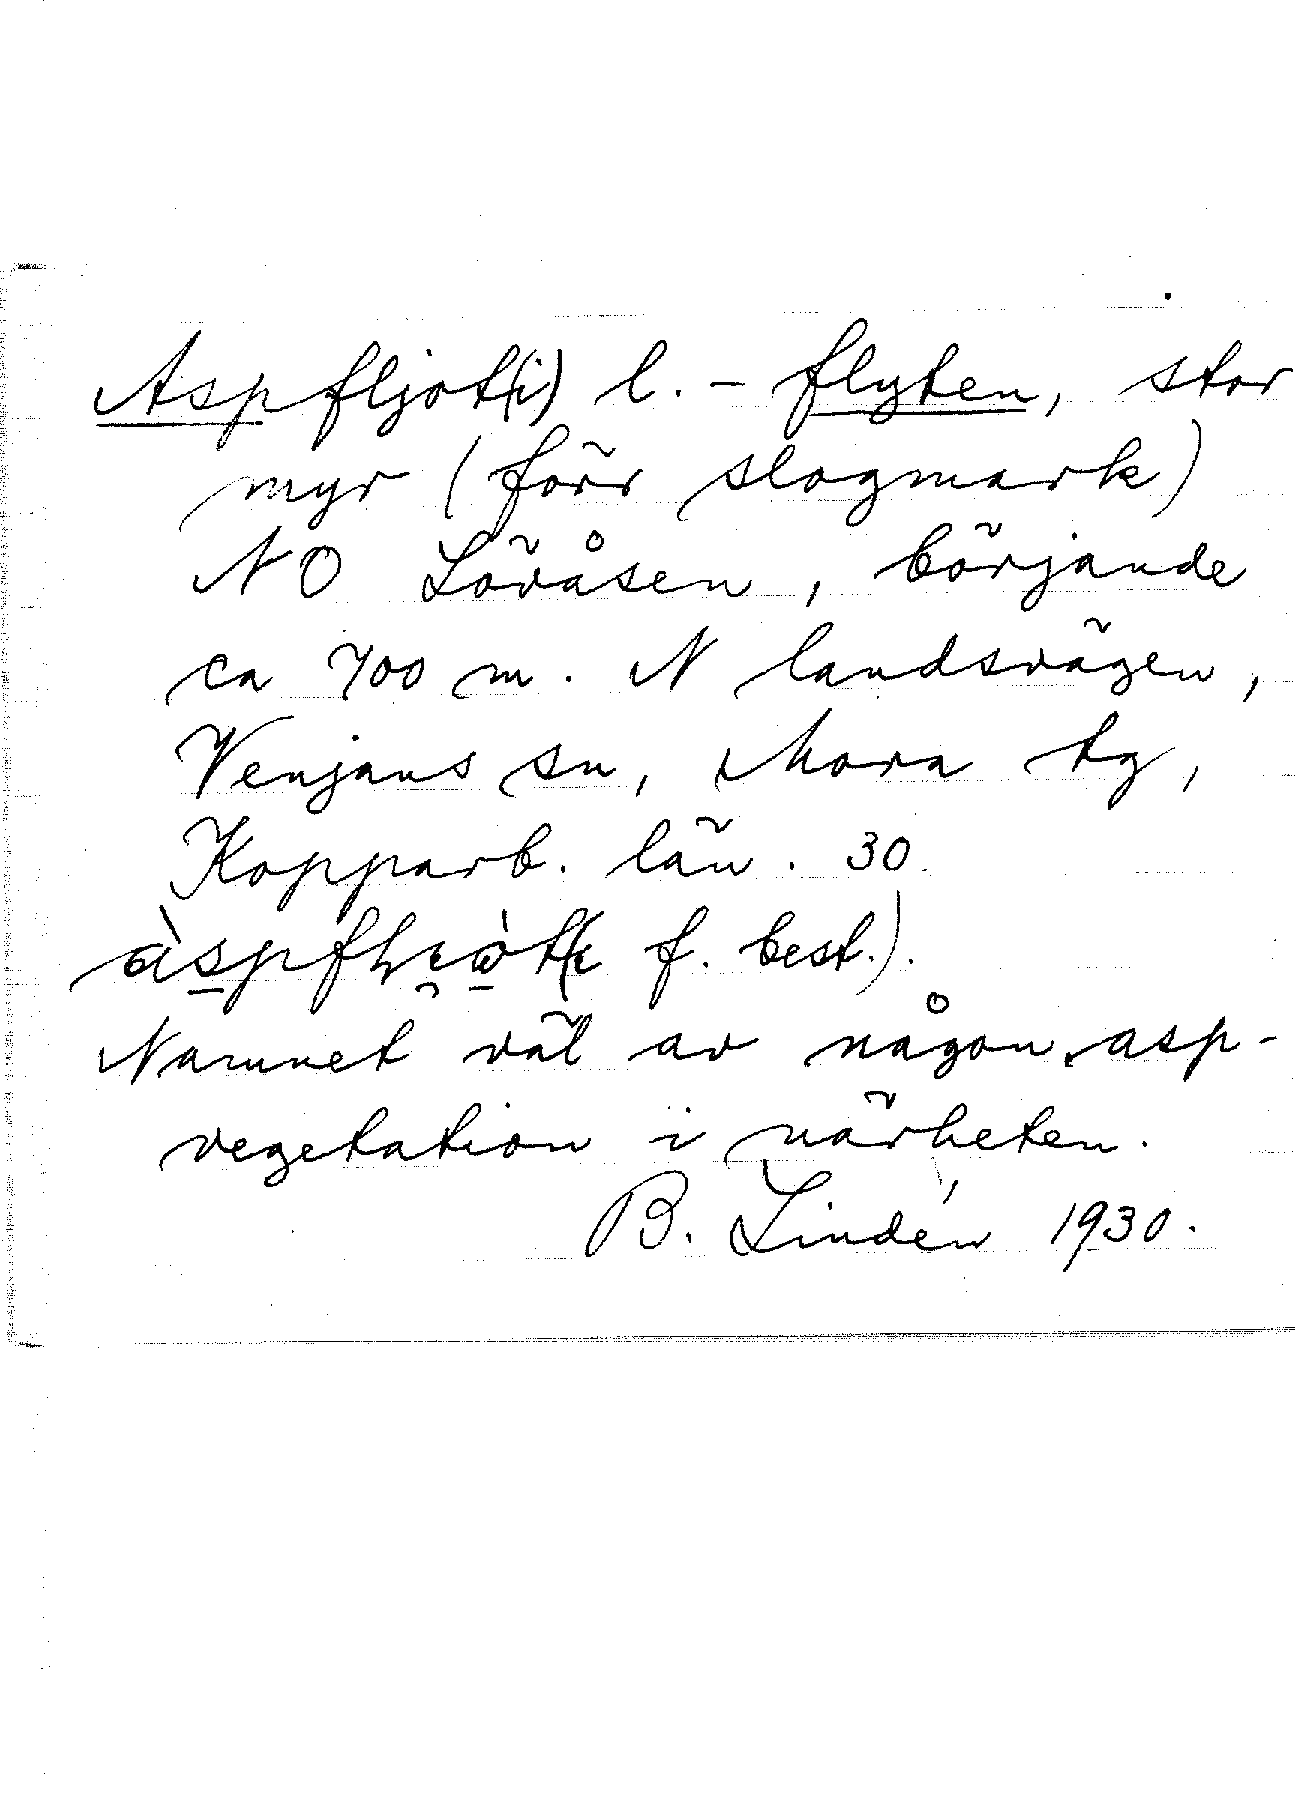 Aspfljot(i) l. - flyten, stor
myr (förr slogmark)
NO Lövåsen, börjande
ca 700 m. N landsvägen,
Venjans sn, Mora tg,
Kopparb. län. 30
f. best.).
Namnet väl av någon asp-
vegetation i närheten.
B. Lindén 1930.